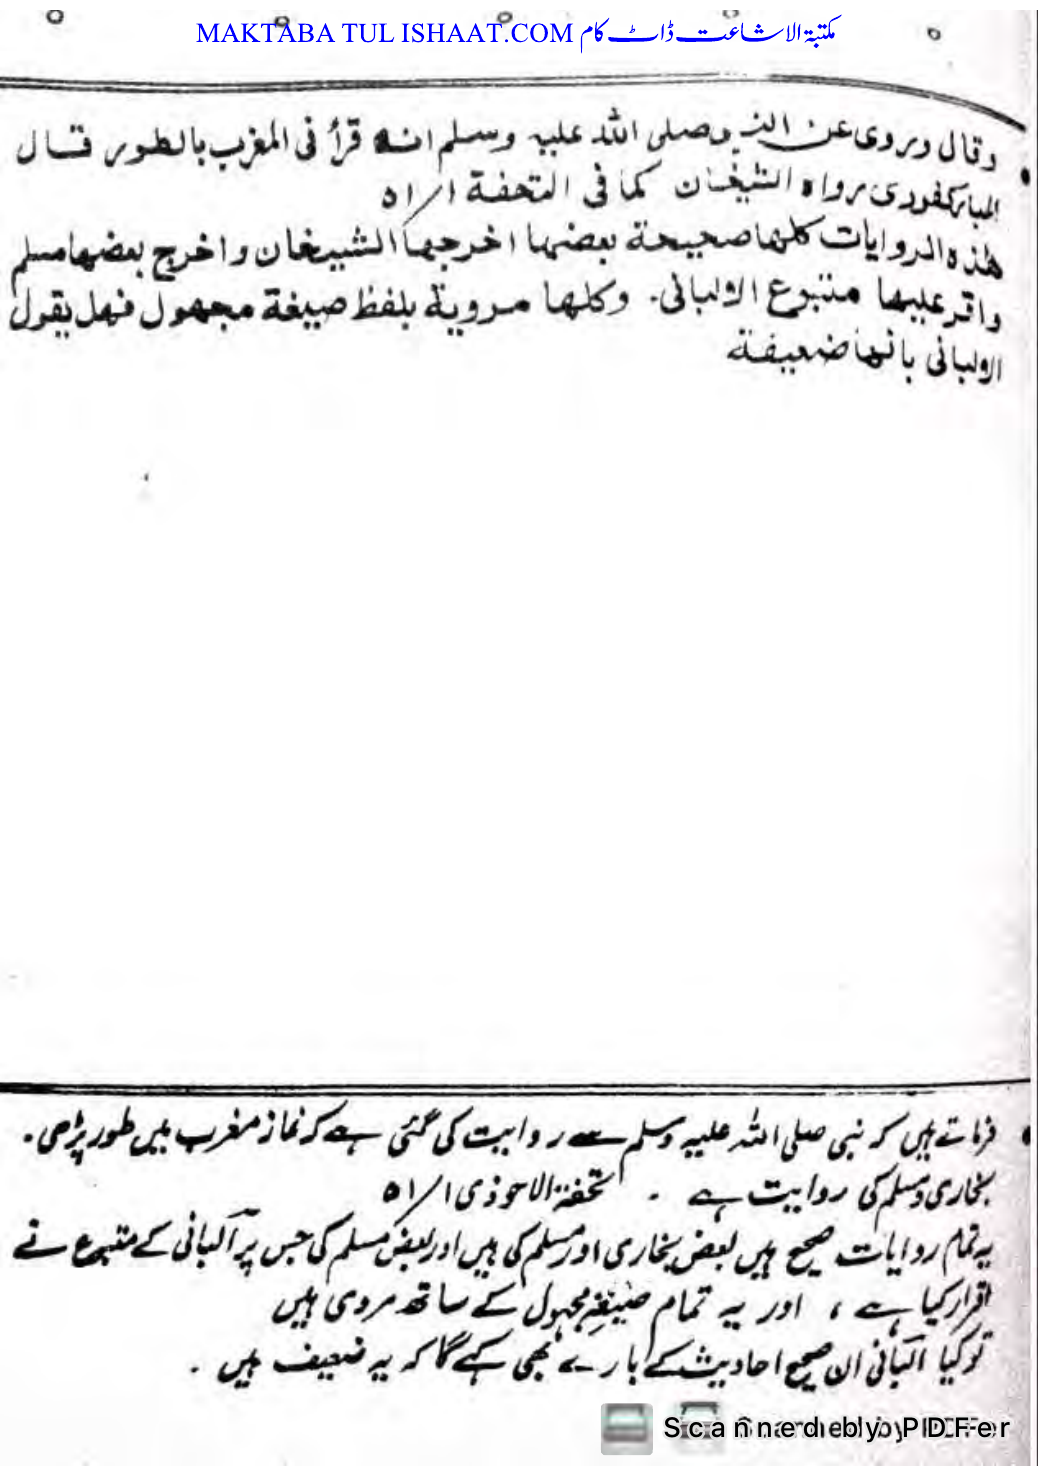 MAKTABA TUL ISHAAT.COM مکتبۃ الاشاعت ڈاٹ کام
وقال ویروی عن النبی صلی اللہ علیہ وسلم انہ قرأ فی المغرب بالطور قال
المبارکفوری رواہ الشیخان کما فی التحفۃ ۱/۵۱
ھذہ الروایات کلھا صحیحۃ بعضھا اخرجھا الشیخان واخرج بعضھا مسلم
واقر علیھا متبوع الالبانی۔ وکلھا مرویۃ بلفظ صیغۃ مجھول فھل یقول
الالبانی بانھا ضعیفۃ
فرماتے ہیں کہ نبی صلی اللہ علیہ وسلم سے روایت کی گئی ہے کہ نماز مغرب میں طور پڑھی۔
بخاری ومسلم کی روایت ہے ۔ تحفۃ الاحوذی ۱/۵۱
یہ تمام روایات صحیح ہیں بعض بخاری اور مسلم کی ہیں اور بعض مسلم کی جس پر آلبانی کے متبوع نے
اقرار کیا ہے ، اور یہ تمام صیغہ مجہول کے ساتھ مروی ہیں
تو کیا آلبانی ان صحیح احادیث کے بارے بھی کہے گا کہ یہ ضعیف ہیں ۔